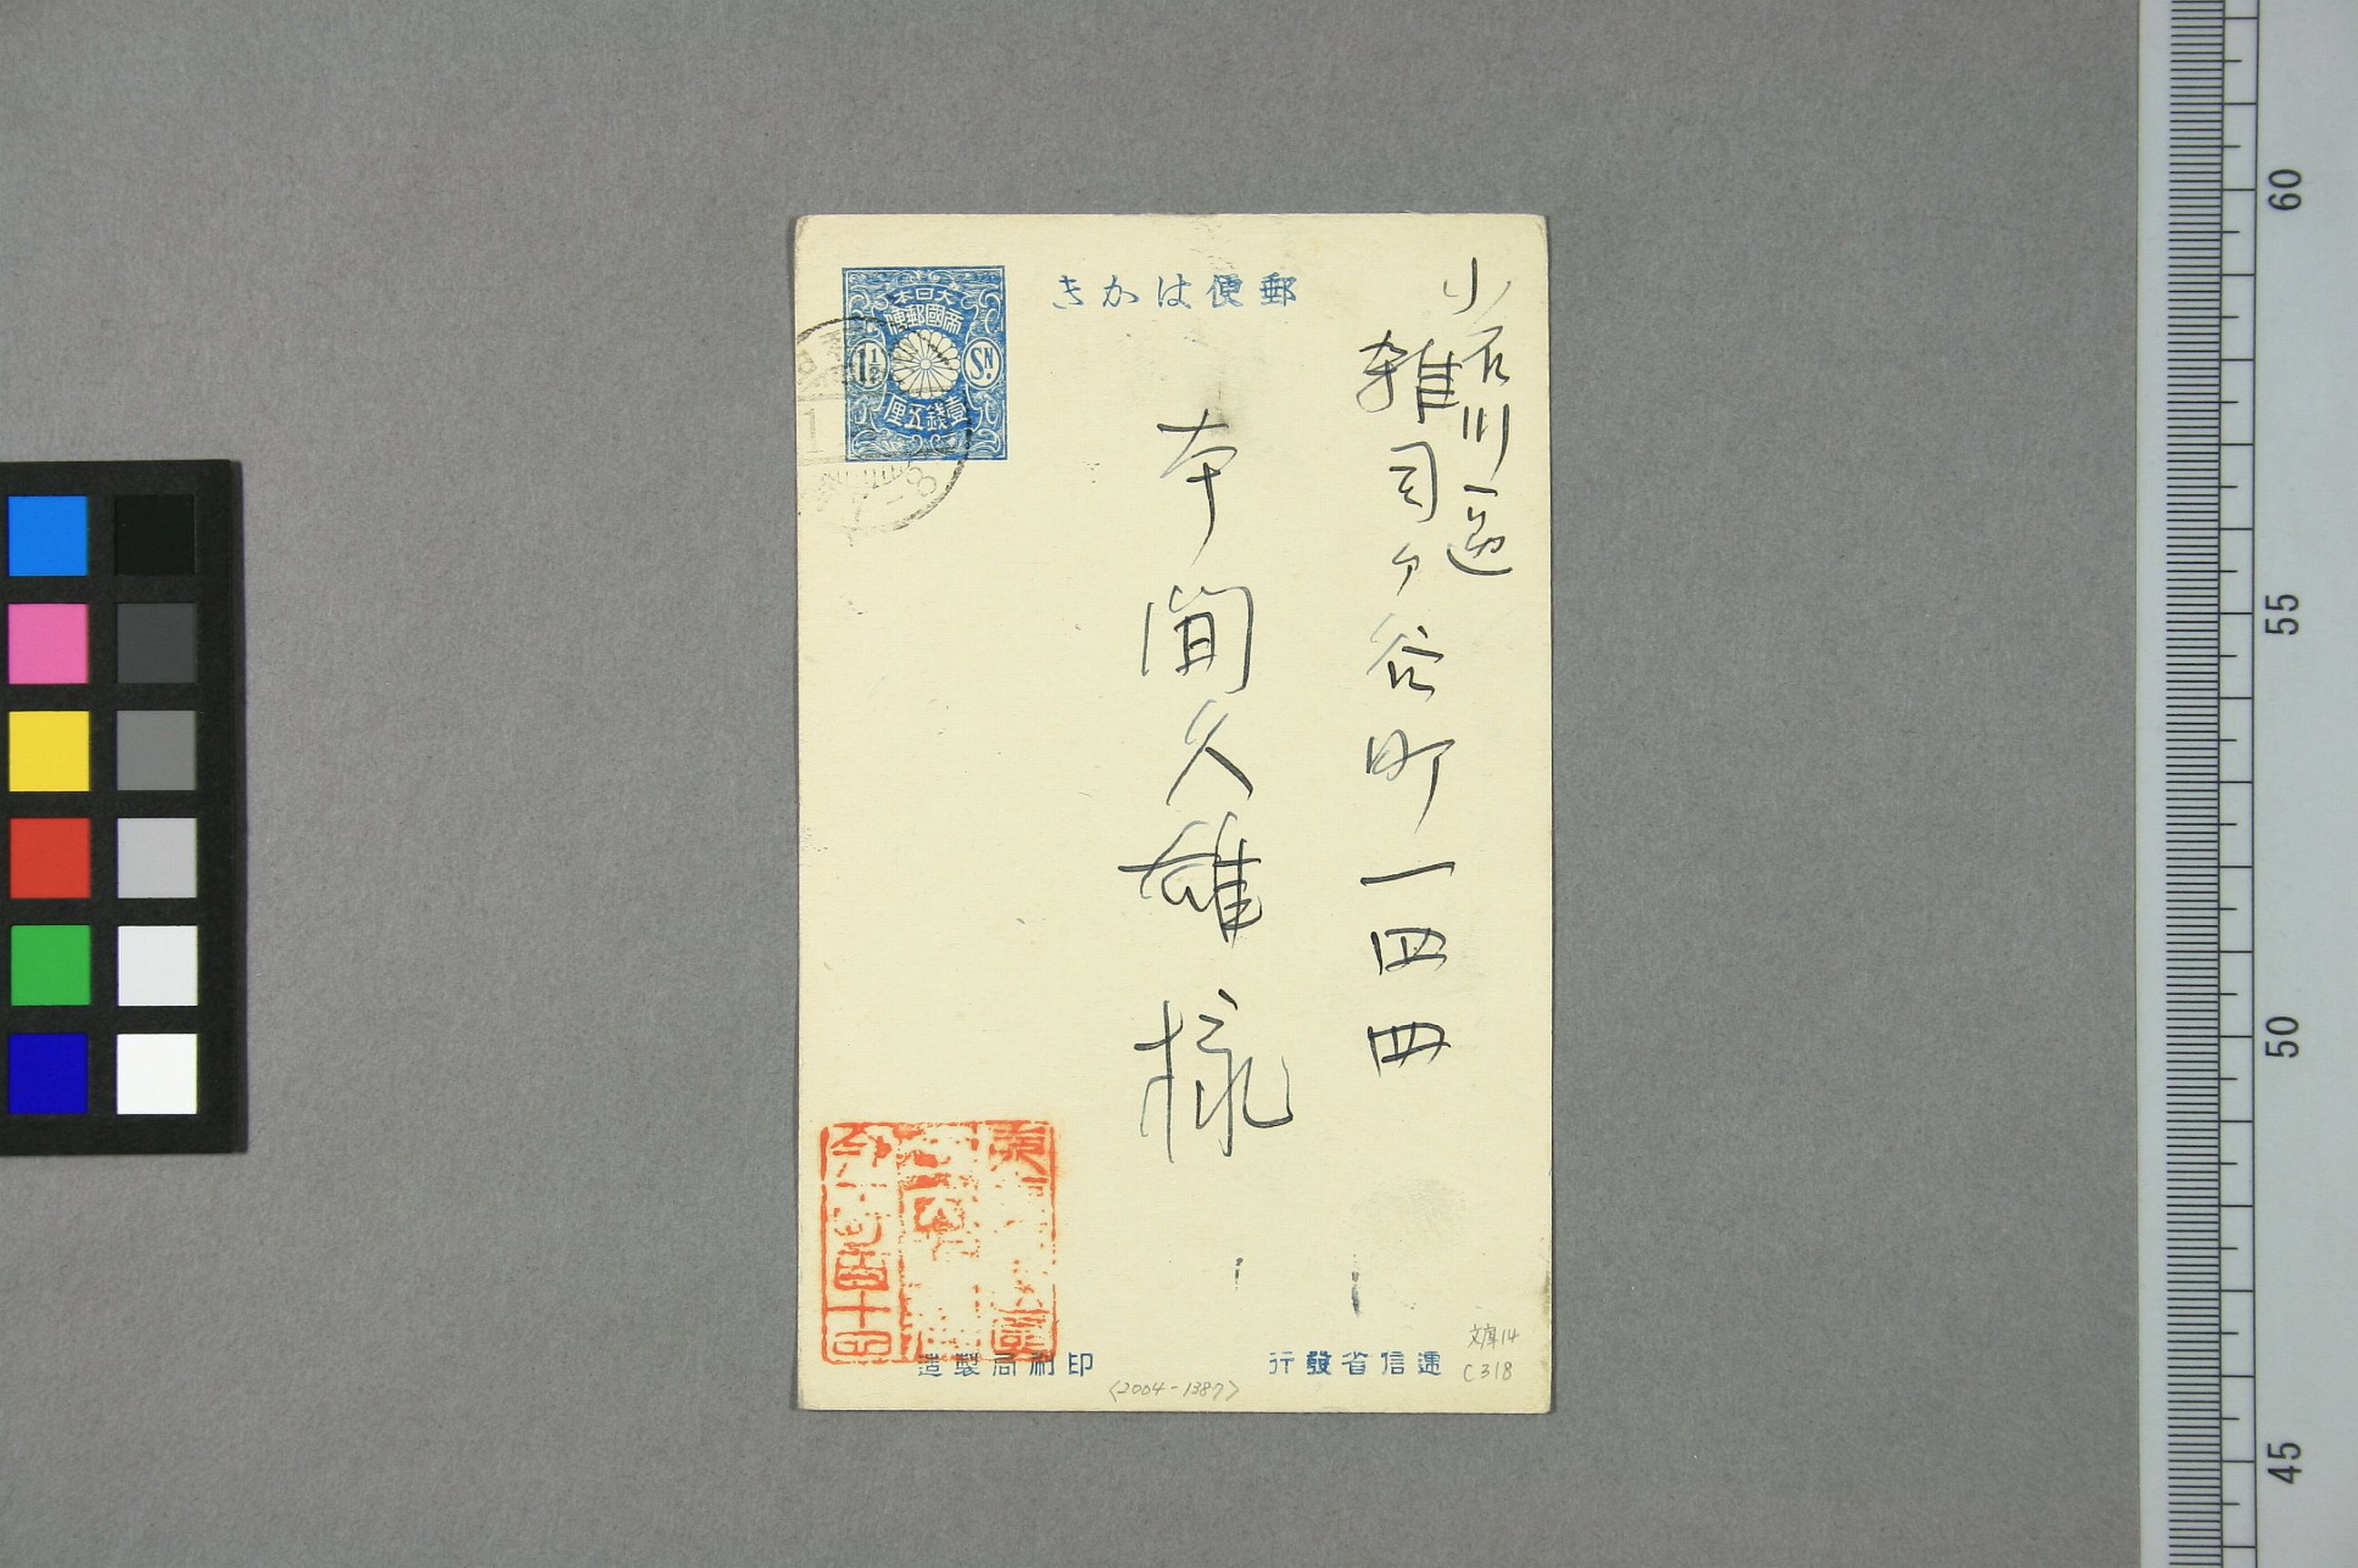 郵便はかき
大日本
帝國郵便
1½
SN.
壹錢五厘
小石川區
雑司ヶ谷町一四四
本間久雄様
逓信省發行
印刷局製造
文庫14
C318
<2004-1387>
60
55
50
45